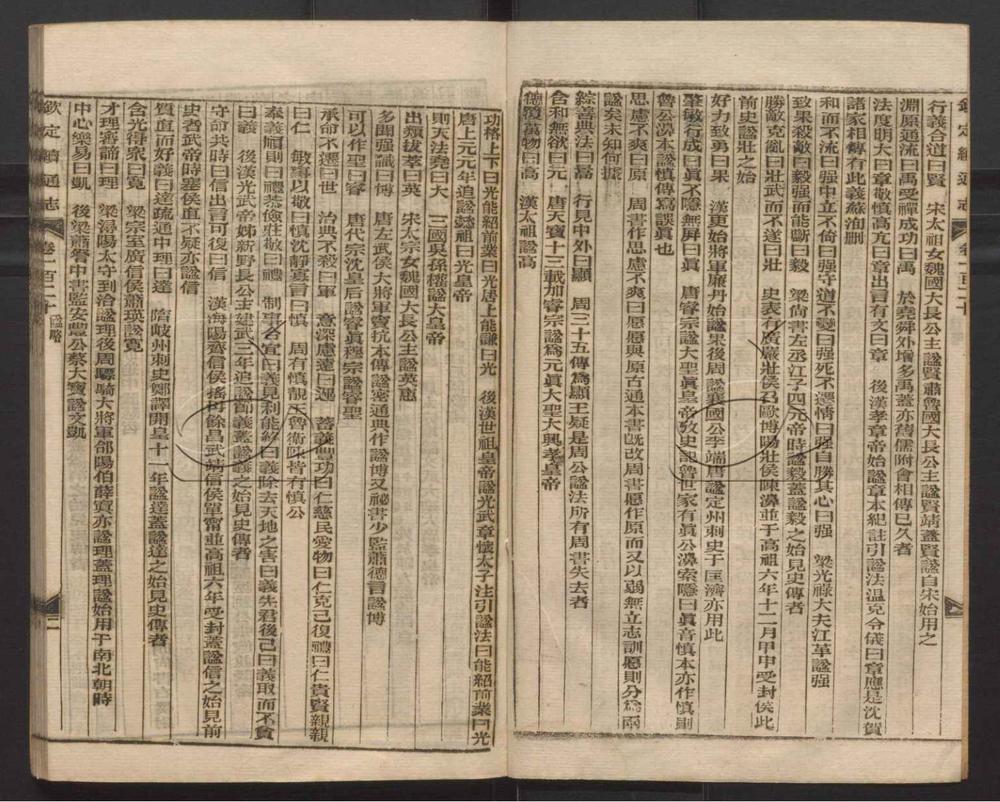 行義合道曰賢　宋太祖女魏國大長公主諡賢肅魯國大長公主諡賢靖蓋賢諡自宋始用之
淵原通流曰禹受禪成功曰禹　於堯舜外增多禹蓋亦舊儒附會相傳已久者
法度明大曰章敬慎高亢曰章出言有文曰章　後漢孝章帝始諡章本紀註引諡法温克令儀曰章應是沈賀
諸家相傳有此義蘇洵删
和而不流曰强中立不倚曰强守道不變曰强死不遷情曰强自勝其心曰强　梁光祿大夫江革諡强
致果殺敵曰毅强而能斷曰毅　梁尚書左丞江子四元帝時諡毅蓋諡毅之始見史傳者
勝敵克亂曰壯武而不遂曰壯　史表有廣嚴壯侯召歐博陽壯侯陳濞並于高祖六年十二月甲申受封侯此
前史諡壯之始
好力致勇曰果　漢更始將軍廉丹始諡果後周諡襄國公李端唐諡定州刺史于匡濟亦用此
肇敏行成曰眞不隱無屏曰眞　唐睿宗諡大聖眞皇帝攷史記魯世家有眞公濞索隱曰眞音慎本亦作慎則
魯公濞本諡慎傳寫誤眞也
思慮不爽曰原　周書作思慮不爽曰愿愿與原古通本書旣改周書愿作原而又以弱無立志訓愿則分爲兩
諡矣未知何據
綜善典法曰暠　行見中外曰顯　周三十五傳爲顯王疑是周公諡法所有周書失去者
含和無欲曰元　唐天寶十三載加睿宗諡爲元眞大聖大興孝皇帝
德覆萬物曰高　漢太祖諡高
功格上下曰光能紹前業曰光居上能謙曰光　後漢世祖皇帝諡光武章懷太子注引諡法曰能紹前業曰光
唐上元元年追諡懿祖曰光皇帝
則天法堯曰大　三國吳孫權諡大皇帝
出類拔萃曰英　宋太宗女魏國大長公主諡英惠
多聞强識曰博　唐左武侯大將軍竇抗本傳諡密通典作諡博又祕書少監蕭德言諡博
可以作聖曰睿　唐代宗沈皇后諡睿眞穆宗諡睿聖
承命不遷曰世　治典不殺曰軍　意深慮遠曰遇　蓄義豐功曰仁慈民愛物曰仁克己復禮曰仁貴賢親親
曰仁　敏事以敬曰慎沈靜寡言曰慎　周有慎靚王魯衛陳皆有慎公
奉義順則曰禮恭儉莊敬曰禮　制事合宜曰義見利能終曰義除去天地之害曰義先君後己曰義取而不貪
曰義　後漢光武帝姊新野長公主建武二年追諡節義蓋諡義之始見史傳者
守命共時曰信出言可復曰信　漢海陽齊信侯搖母餘昌武靖信侯單甯並高祖六年受封蓋諡信之始見前
史者武帝時塞侯直不疑亦諡信
質直而好義曰達疏通中理曰達　隋岐州刺史鄭譯開皇十一年諡達蓋諡達之始見史傳者
含光得衆曰寬　梁宗室廣信侯蕭瑛諡寬
才理審諦曰理　梁潯陽太守到洽諡理後周驃騎大將軍郃陽伯薛寘亦諡理蓋理諡始用于南北朝時
中心樂易曰凱　後梁蕭詧中書監安豐公蔡大寶諡文凱
欽定續通志　卷一百二十　諡略　二